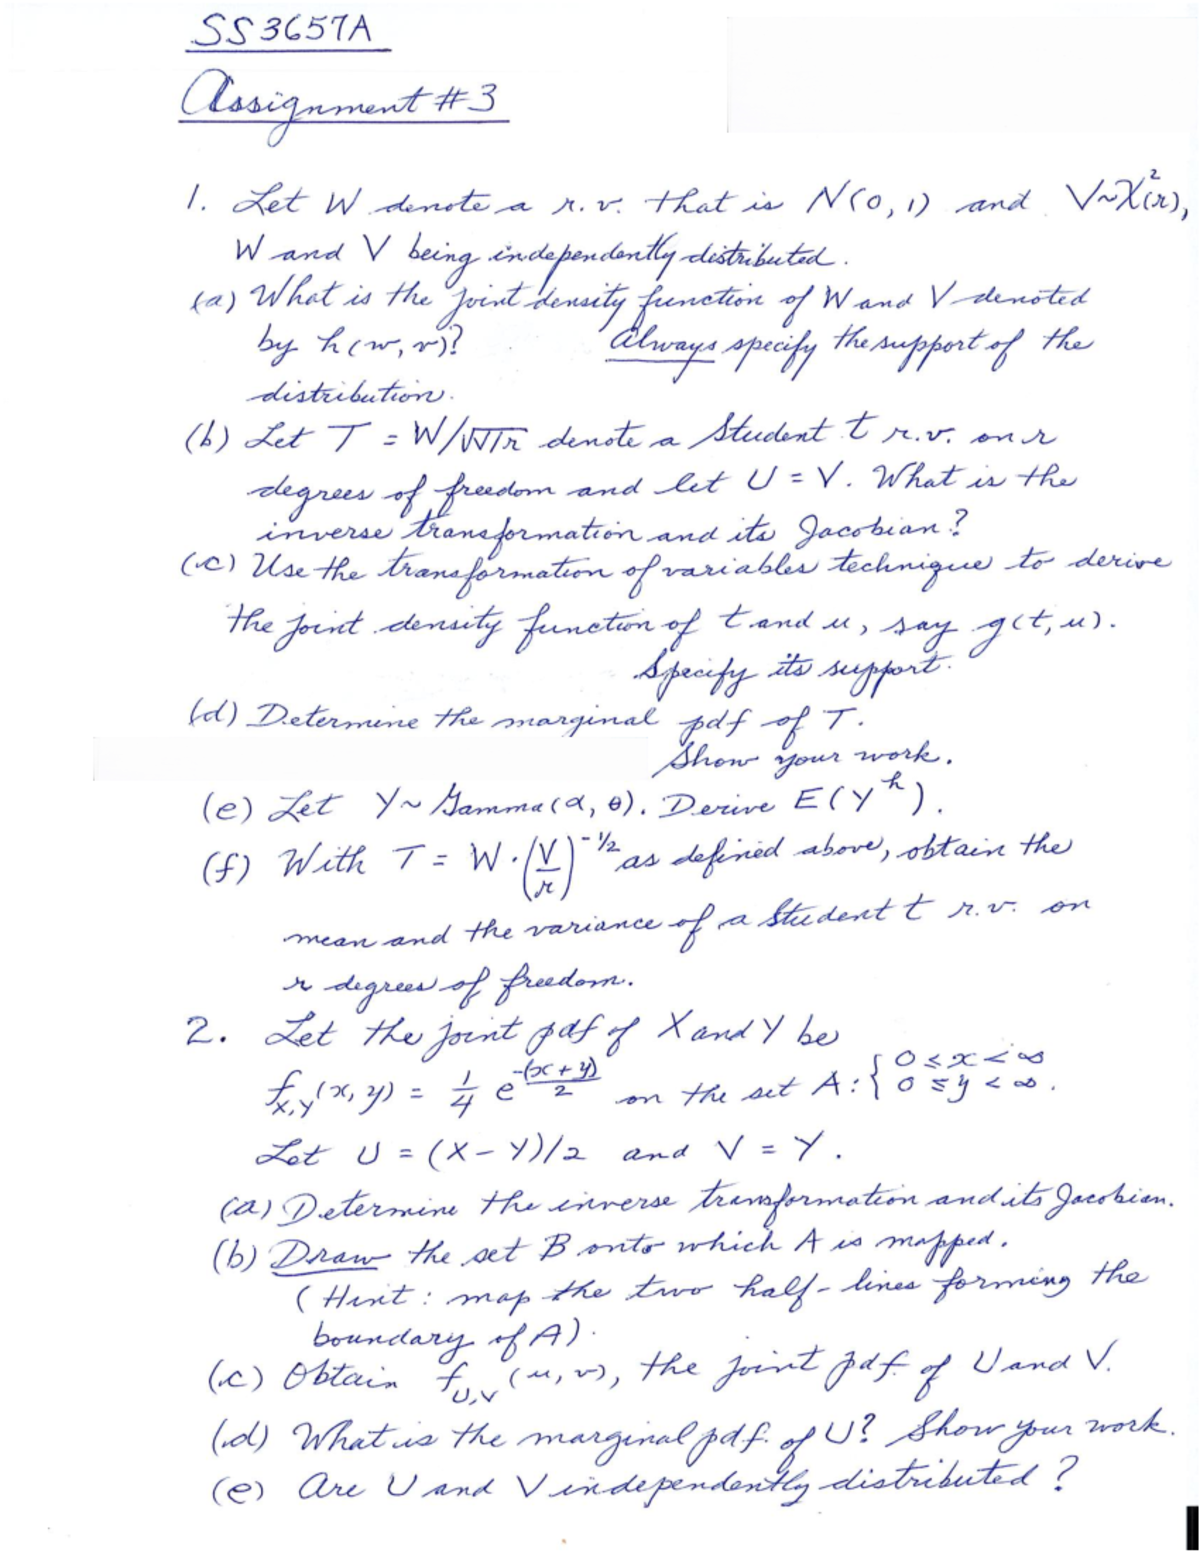 SS 3657A
Assignment #3
1. Let W denote a r.v. that is N(0,1) and V~χ²(r),
W and V being independently distributed.
(a) What is the joint density function of W and V denoted
by h(w,v)? Always specify the support of the
distribution.
(b) Let T = W/√V/r denote a Student t r.v. on r
degrees of freedom and let U = V. What is the
inverse transformation and its Jacobian?
(c) Use the transformation of variables technique to derive
the joint density function of t and u, say g(t,u).
Specify its support.
(d) Determine the marginal pdf of T.
Show your work.
(e) Let Y~ Gamma(α, θ). Derive E(Y^h).
(f) With T = W·(V/r)^-1/2 as defined above, obtain the
mean and the variance of a Student t r.v. on
r degrees of freedom.
2. Let the joint pdf of X and Y be
f_X,Y(x,y) = 1/4 e^-(x+y)/2 on the set A: { 0≤x<∞ 0≤y<∞.
Let U = (X-Y)/2 and V = Y.
(a) Determine the inverse transformation and its Jacobian.
(b) Draw the set B onto which A is mapped.
(Hint: map the two half-lines forming the
boundary of A).
(c) Obtain f_U,V(u,v), the joint pdf of U and V.
(d) What is the marginal pdf. of U? Show your work.
(e) Are U and V independently distributed?